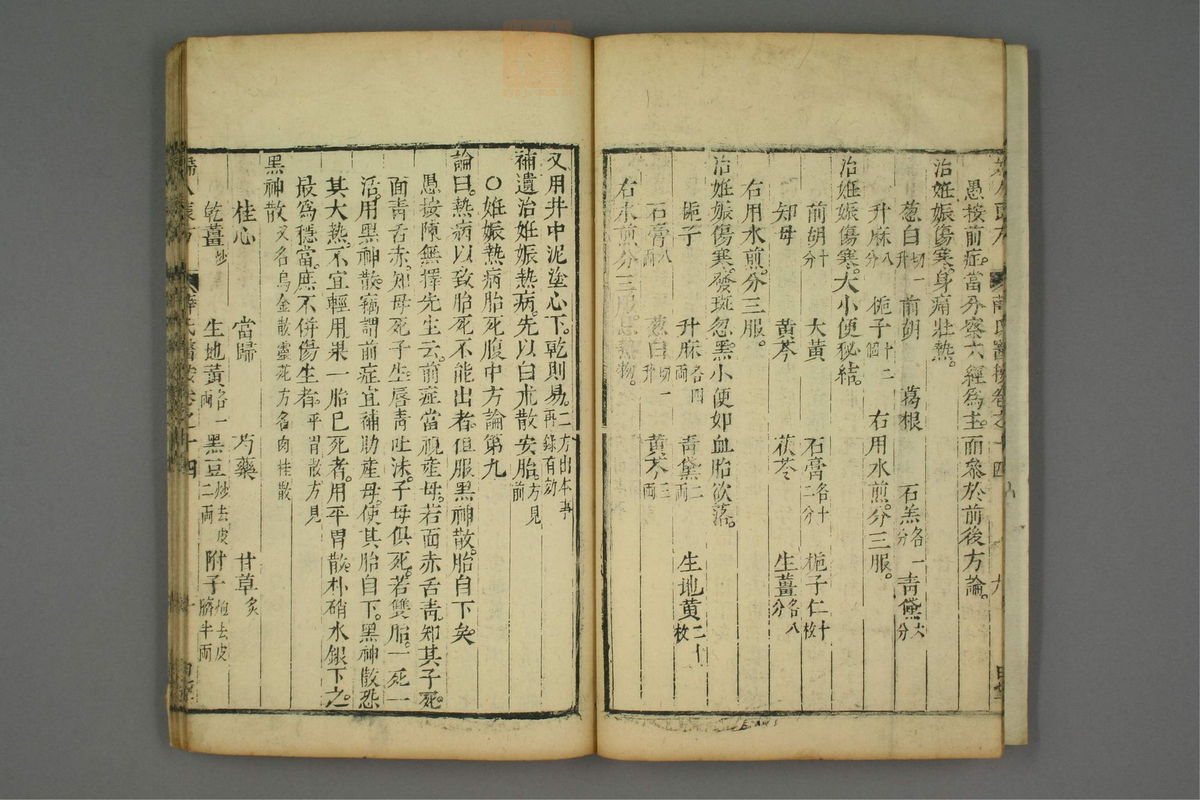 愚按前症當分察六經爲主而參於前後方論
治姙娠傷寒身痛壯熱
葱白切一升 前胡 葛根 石羔各一分 青黛六分
升麻八分 梔子十二個 右用水煎分三服
治姙娠傷寒大小便秘結
前胡十分 大黃 石膏各十二分 梔子仁十枚
知母 黃芩 茯苓 生薑各八分
右用水煎分三服
治姙娠傷寒發斑忽黑小便如血胎欲落
梔子 升麻各四兩 青黛二兩 生地黃二十枚
石膏八兩 葱白切一升 黃芩三兩
右水煎分三服忌熱物
又用井中泥塗心下乾則易二方出本事再錄有効
補遺治姙娠熱病先以白朮散安胎方見前
○姙娠熱病胎死腹中方論第九
論曰熱病以致胎死不能出者但服黑神散胎自下矣
愚按陳無擇先生云前症當視產母若面赤舌青知其子死
面青舌赤知母死子生唇青吐沫子母俱死若雙胎一死一
活用黑神散竊謂前症宜補助產母使其胎自下黑神散恐
其大熱不宜輕用果一胎已死者用平胃散朴硝水銀下之
最爲穩當庶不併傷生者平胃散方見
黑神散又名烏金散靈苑方名肉桂散
桂心 當歸 芍藥 甘草炙
乾薑炒 生地黃各一兩 黑豆炒去皮二兩 附子炮去皮臍半兩